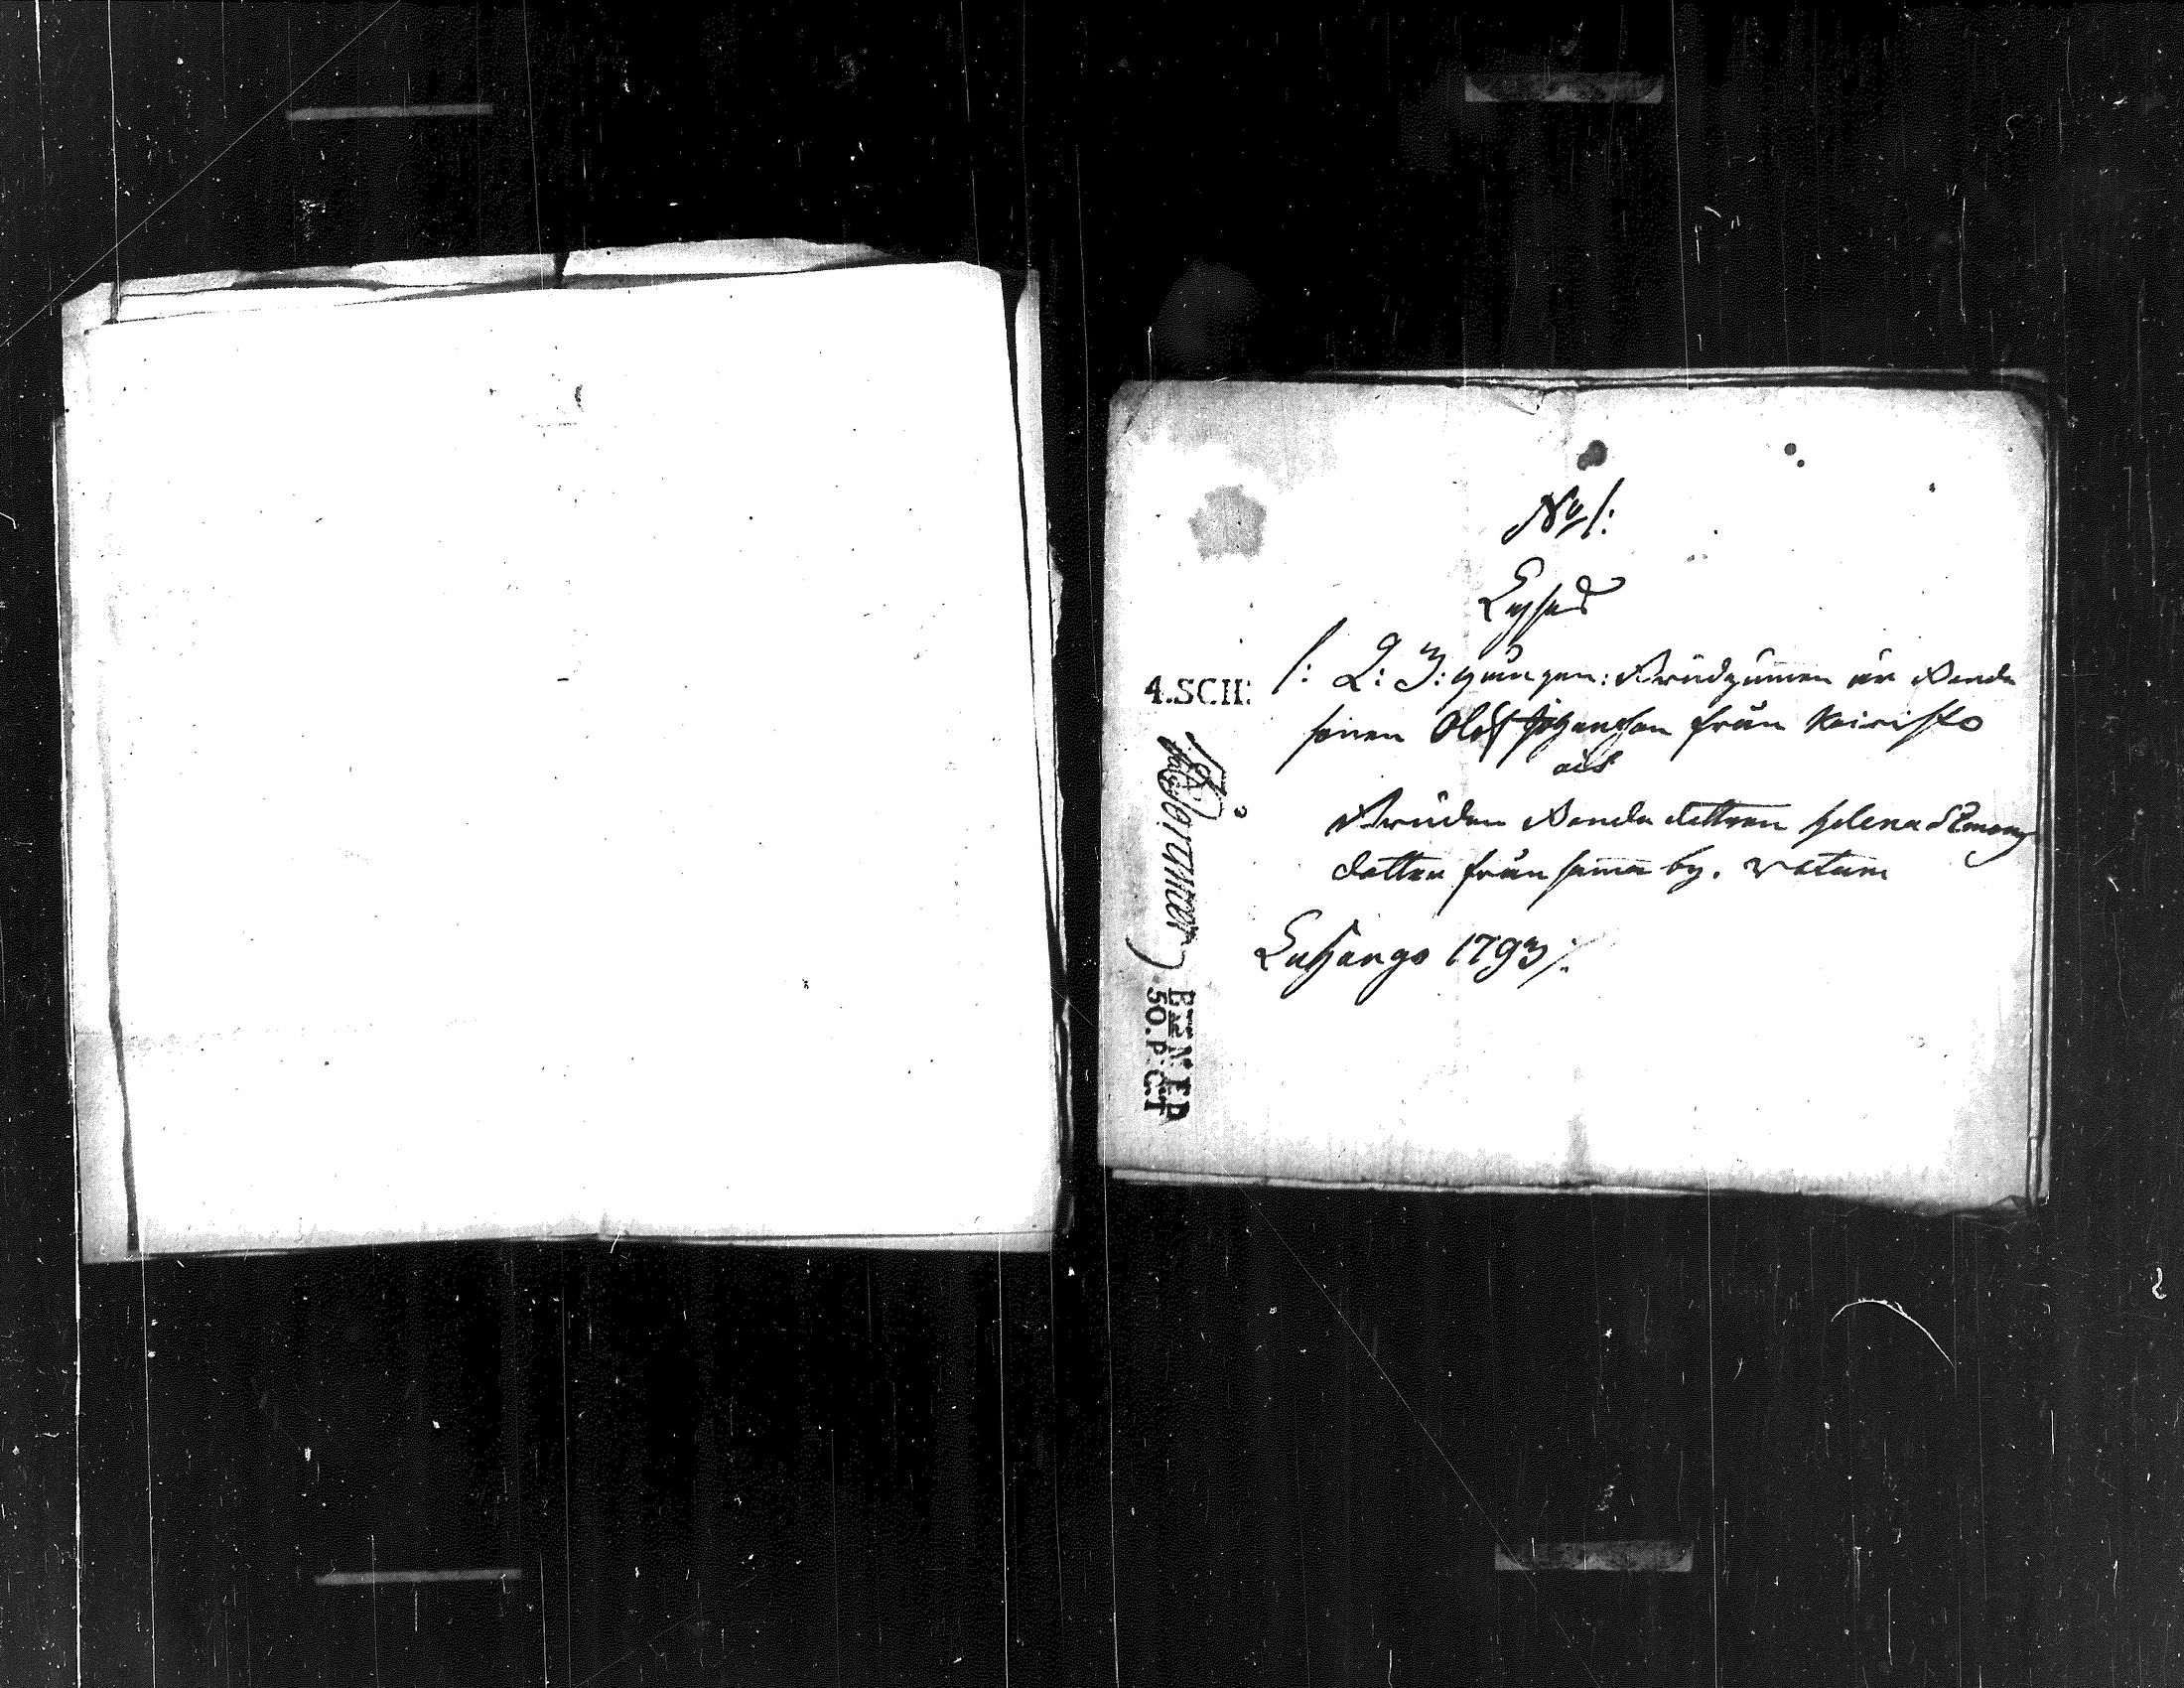 No 1:
Lyses
1: 2: 3: gången: Brudgumen är Bonde
sonen Olof Johansson från Kairisto
och
Bruden Bonde dottren Helena Simons
dotter från samma by. 
4.SCH:
50.P:C:T
1793